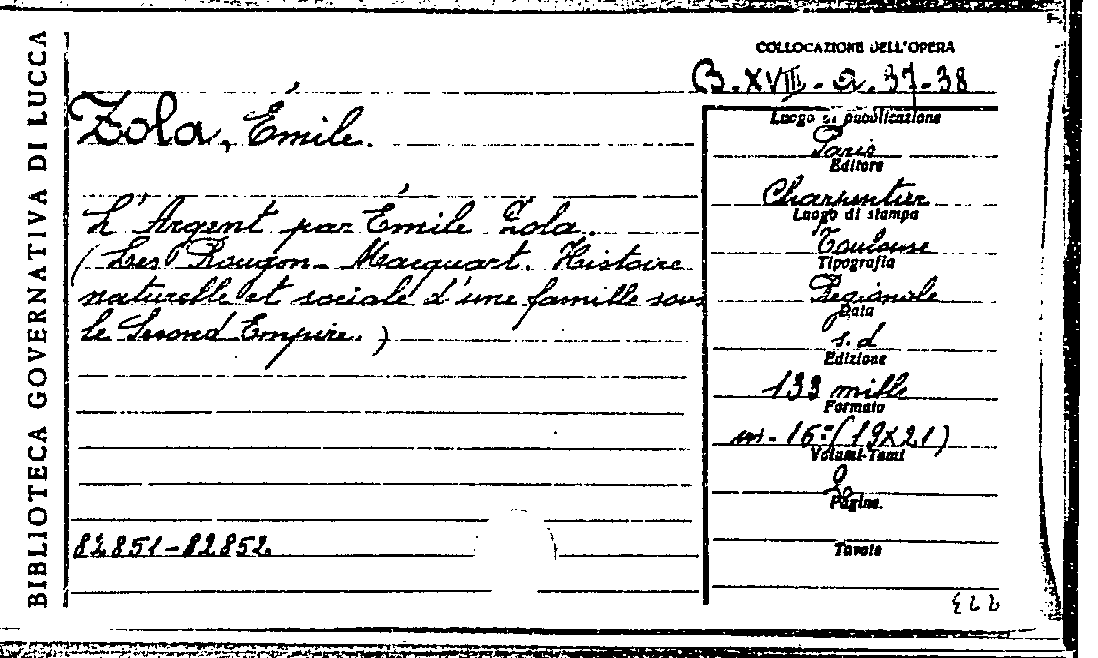 BIBLIOTECA GOVERNATIVA DI LUCCA
COLLOCAZIONE DELL'OPERA
B. XVIII. a. 37-38
Zola, Émile.
L'Argent par Émile Zola.
(Les Rougon-Macquart. Histoire
naturelle et sociale d'une famille sous
le Second Empire.)
82851-82852.
Luogo di pubblicazione
Paris
Editore
Charpentier
Luogo di stampa
Toulouse
Tipografia
Régionale
Data
s. d
Edizione
133 mille
Formato
in-16° (19X21)
Volumi-Tomi
2
Pagine.
Tavole